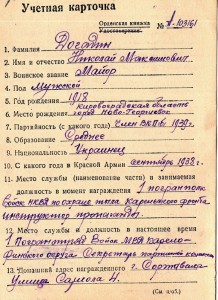 Учетная карточка
Орденская книжка № А-103161
Удостоверение
1. Фамилия Рогодин
2. Имя и отчество Николай Максимович
3. Воинское звание Майор
4. Пол Мужской
5. Год рождения 1918
Кировоградская область
6. Место рождения город Ново-Георгиевс
7. Партийность (с какого года) Член ВКП(б) 1939 г.
8. Образование Среднее
9. Национальность Украинец
10. С какого года в Красной Армии сентябрь 1938 г.
11. Место службы (наименование части) и занимаемая
должность в момент награждения 1 погранполк
Войск НКВД по охране тыла Карельского фронта
инструктор пропаганды
12. Место службы и должность в настоящее время
1 Погранотряд Войск МВД Карело-
Финского округа Секретарь партийной
13. Домашний адрес награжденного г. Сортавала
улица
(См н/об.)